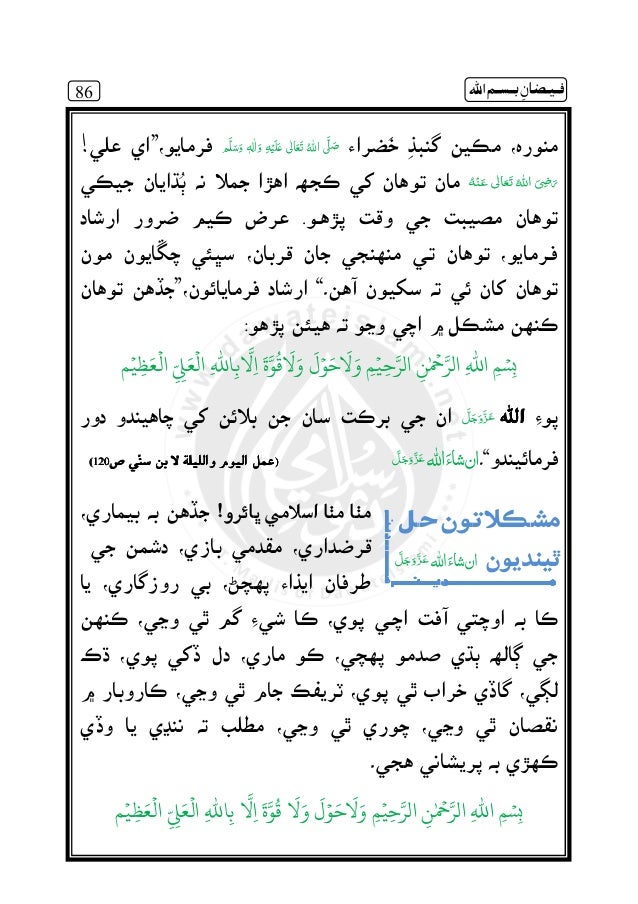 فيضانِ بسم الله
86
منوره، مڪين گنبذِ خَضراء صَلَّى اللهُ تَعَالٰى عَلَيْهِ وَاٰلِهٖ وَسَلَّم فرمايو،”اي علي!
رَضِىَ اللهُ تَعَالٰى عَنْهُ مان توهان کي ڪجهه اهڙا جملا نہ ٻُڌايان جيڪي
توهان مصيبت جي وقت پڙهو. عرض ڪيم ضرور ارشاد
فرمايو، توهان تي منهنجي جان قربان، سڀئي چڱايون مون
توهان کان ئي تہ سکيون آهن.“ ارشاد فرمايائون،”جڏهن توهان
ڪنهن مشڪل ۾ اچي وڃو تہ هيئن پڙهو:
بِسْمِ اللهِ الرَّحْمٰنِ الرَّحِيْمِ وَلَاحَوْلَ وَلَاقُوَّةَ اِلَّابِاللهِ الْعَلِىِّ الْعَظِيْم
پوءِ الله عَزَّوَجَلَّ ان جي برڪت سان جن بلائن کي چاهيندو دور
فرمائيندو“.ان شاءَالله عَزَّوَجَلَّ (عمل اليوم والليلة لا بن سنّي ص120)
مشڪلاتون حل
ٿينديون ان شاءَالله عَزَّوَجَلَّ
مٺا مٺا اسلامي ڀائرو! جڏهن بہ بيماري،
قرضداري، مقدمي بازي، دشمن جي
طرفان ايذاء پهچڻ، بي روزگاري، يا
ڪا بہ اوچتي آفت اچي پوي، ڪا شيءِ گم ٿي وڃي، ڪنهن
جي ڳالهہ ٻڌي صدمو پهچي، ڪو ماري، دل ڏکي پوي، ڌڪ
لڳي، گاڏي خراب ٿي پوي، ٽريفڪ جام ٿي وڃي، ڪاروبار ۾
نقصان ٿي وڃي، چوري ٿي وڃي، مطلب تہ ننڍي يا وڏي
ڪهڙي بہ پريشاني هجي.
بِسْمِ اللهِ الرَّحْمٰنِ الرَّحِيْمِ وَلَاحَوْلَ وَلَا قُوَّةَ اِلَّا بِاللهِ الْعَلِىِّ الْعَظِيْم
www.dawateislami.net